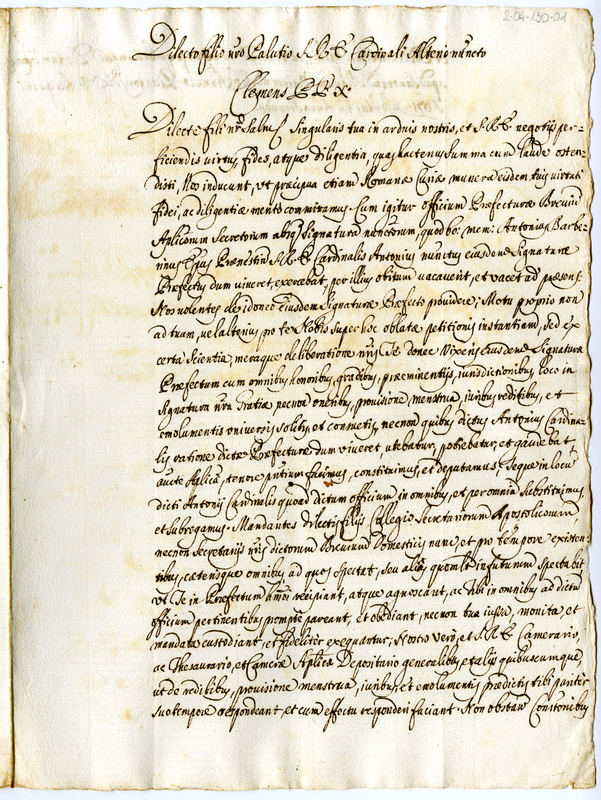 2-04-130-01
Dilecto filio nro Palutio S.R.E. Cardinali Alterio nuncto
Clemens P.P. X.
Dilecte fili nr Salut. Singularis tua in arduis nostris, et S.R.E. negotijs per-
ficiendis virtus, fides, atque diligentia, quas hactenus summa cum laude osten-
disti, Nos inducunt, ut præcipua etiam Romanæ Curiæ munera eisdem tuis virtuti
fidei, ac diligentiæ mento committamus. Cum igitur officium Præfecturæ Brevium
Aplicorum Secretorum absq Signatura nunctorum, quod bo: mem: Antonius Barbe-
rinus Epus Prænestin S.R.E. Cardinalis Antonius nunctus eiusdem Signaturæ
Præfectus dum viveret, exercebat, per illius obitum vacaverit, et vacet ad præsens:
Nos volentes de idoneo eiusdem Signaturæ Præfecto providere; Motu proprio non
ad tuam, vel alterius pro te Nobis super hoc oblatæ petitionis instantiam, sed ex
certa scientia, meraque deliberatione nris Te donec vixeris eiusdem Signaturæ
Præfectum cum omnibus honoribus, gradibus, præeminentijs, iurisdictionibus, loco in
Signatura nra Gratiæ necnon oneribus, provisione, menstrua, iuribus reditibus, et
emolumentis universis solitis, et consuetis, necnon quibus dictus Antonius Cardina-
lis ratione dictæ Præfecturæ dum viveret, utebatur, potiebatur, et gaudebat
aucte Aplica, tenore pntium facimus, constituimus, et deputamus, Teque in locu
dicti Antonij Cardinalis quoad dictum officium in omnibus, et per omnia substituimus,
et subrogamus. Mandantes dilectis filijs Collegio Secretariorum Apostolicorum,
necnon Secretarijs nris dictorum Brevium Domesticis nunc, et pro tempore existen-
tibus, cæterisque omnibus ad quos spectat, seu alias quomlt in futurum spectabit
ut Te in Præfectum hmoi recipiant, atque agnoscant, ac Tibi in omnibus ad dictu
officium pertinentibus prompte pareant, et obediant, necnon tua iussa, monita, et
mandata custodiant, et fideliter exequantur; Nostro vero, et S.R.E. Camerario,
ac Thesaurario, et Cameræ Aplicæ Depositario generalibus, et alijs quibuscumque,
ut de reditibus, provisione menstrua, iuribus, et emolumentis prædictis tibi pariter
suo tempore respondeant, et cum effectu responderi faciant. Non obstan Constonibus